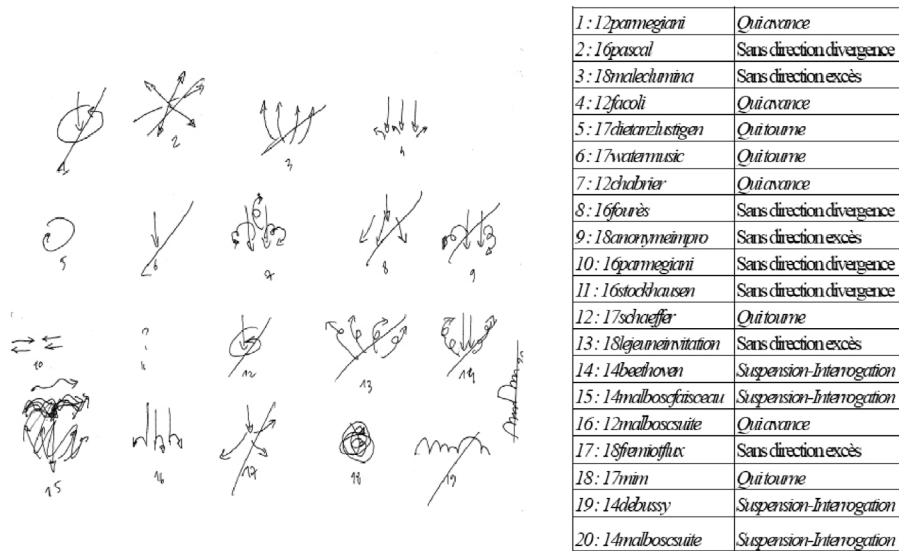 1
2
3
4
5
6
7
8
9
10
?
11
12
13
14
15
16
17
18
19
20
1 : 12parmegiani Qui avance
2 : 16pascal Sans direction divergence
3 : 18maleclumina Sans direction excès
4 : 12facoli Qui avance
5 : 17dietanzlustigen Qui tourne
6 : 17watermusic Qui tourne
7 : 12chabrier Qui avance
8 : 16fourès Sans direction divergence
9 : 18anonymeimpro Sans direction excès
10 : 16parmegiani Sans direction divergence
11 : 16stockhausen Sans direction divergence
12 : 17schaeffer Qui tourne
13 : 18lejeuneinvitation Sans direction excès
14 : 14beethoven Suspension-Interrogation
15 : 14malboscfaisceau Suspension-Interrogation
16 : 12malboscsuite Qui avance
17 : 18fremiotflux Sans direction excès
18 : 17mim Qui tourne
19 : 14debussy Suspension-Interrogation
20 : 14malboscsuite Suspension-Interrogation